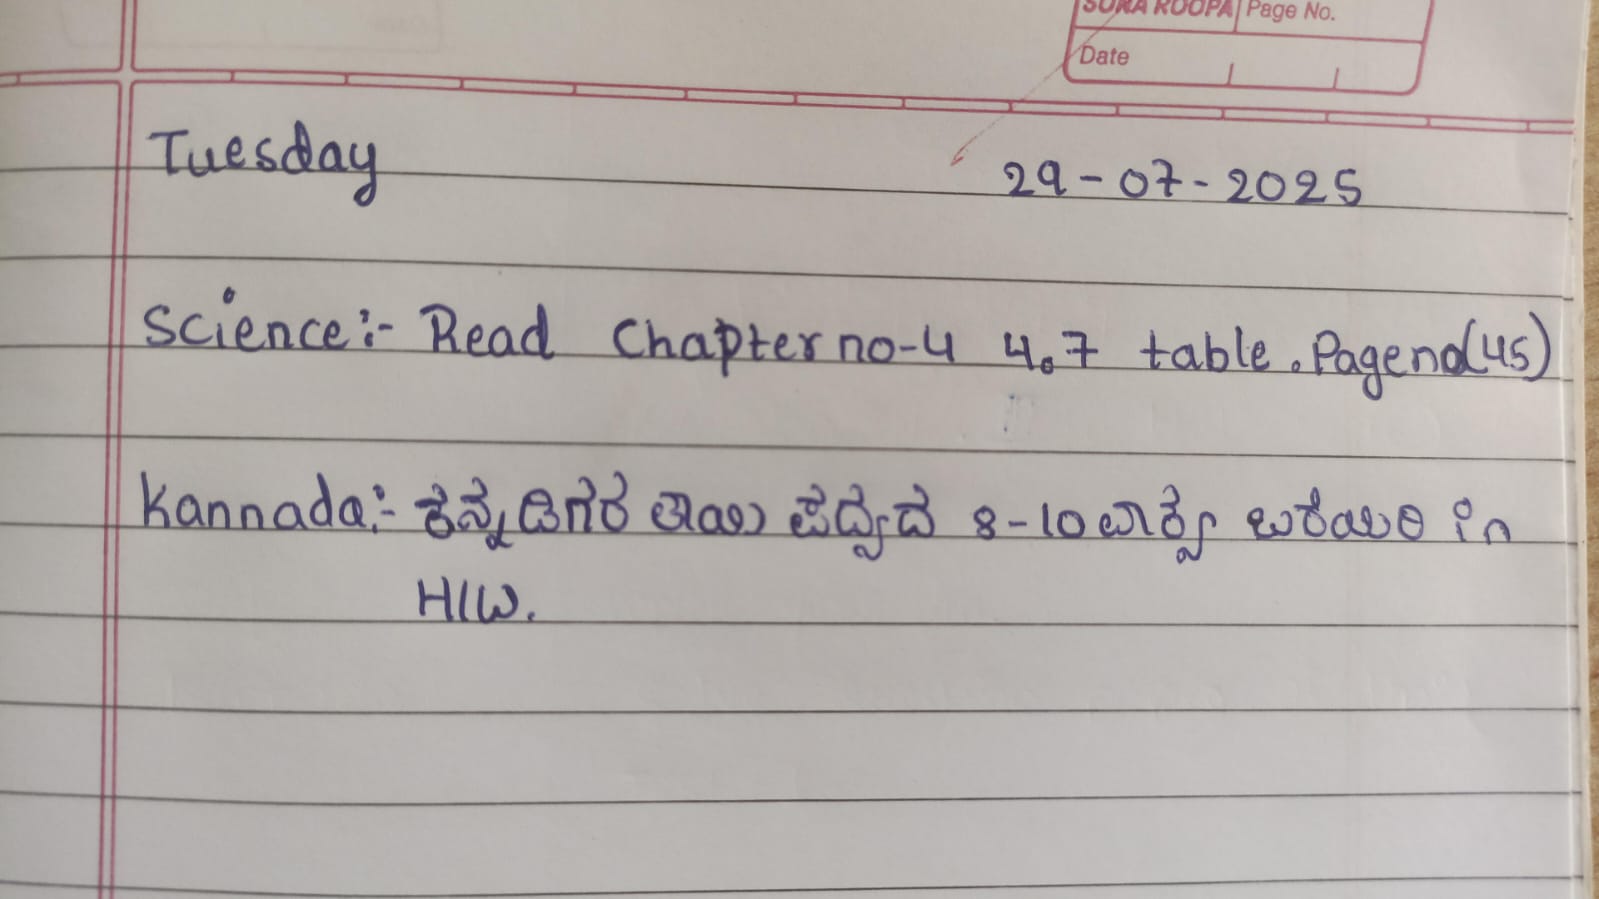 SUNA ROOPA Page No.
Date
Tuesday 29-07-2025
Science:- Read Chapter no-4 4.7 table. Page no(45)
Kannada:- ಕನ್ನಡಿಗರ ತಾಯಿ ಪದ್ಯದ 8-10 ವಾಕ್ಯ ಬರೆಯಿರಿ in
H/W.